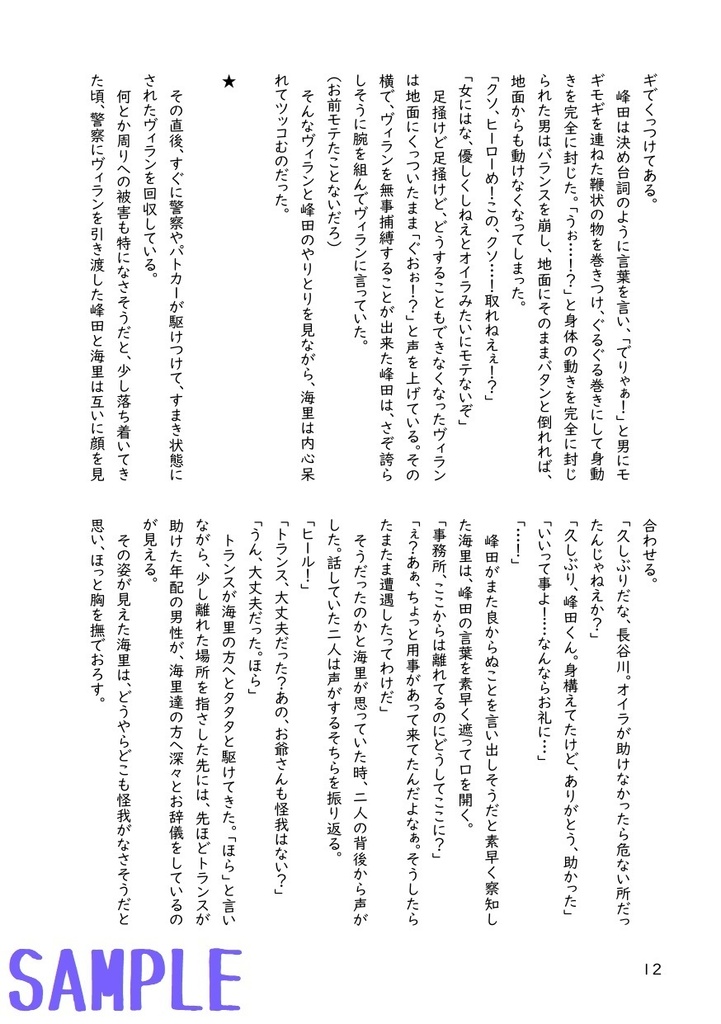 ギでくっつけてある。
　峰田は決め台詞のように言葉を言い、「でりゃぁ！」と男にモ
ギモギを連ねた鞭状の物を巻きつけ、ぐるぐる巻きにして身動
きを完全に封じた。「うぉ…！？」と身体の動きを完全に封じ
られた男はバランスを崩し、地面にそのままバタンと倒れれば、
地面からも動けなくなってしまった。
「クソ、ヒーローめ！この、クソ…！取れねえぇ！？」
「女にはな、優しくしねえとオイラみたいにモテないぞ」
　足掻けど足掻けど、どうすることもできなくなったヴィラン
は地面にくっついたまま「ぐおぉ！？」と声を上げている。その
横で、ヴィランを無事捕縛することが出来た峰田は、さぞ誇ら
しそうに腕を組んでヴィランに言っていた。
（お前モテたことないだろ）
　そんなヴィランと峰田のやりとりを見ながら、海里は内心呆
れてツッコむのだった。
★
　その直後、すぐに警察やパトカーが駆けつけて、すまき状態に
されたヴィランを回収している。
　何とか周りへの被害も特になさそうだと、少し落ち着いてき
た頃、警察にヴィランを引き渡した峰田と海里は互いに顔を見
合わせる。
「久しぶりだな、長谷川。オイラが助けなかったら危ない所だっ
たんじゃねえか？」
「久しぶり、峰田くん。身構えてたけど、ありがとう、助かった」
「いいって事よー…なんならお礼に…」
「…！」
　峰田がまた良からぬことを言い出しそうだと素早く察知し
た海里は、峰田の言葉を素早く遮って口を開く。
「事務所、ここからは離れてるのにどうしてここに？」
「ぇ？あぁ、ちょっと用事があって来てたんだよなぁ。そうしたら
たまたま遭遇したってわけだ」
　そうだったのかと海里が思っていた時、二人の背後から声が
した。話していた二人は声がするそちらを振り返る。
「ヒール！」
「トランス、大丈夫だった？あの、お爺さんも怪我はない？」
「うん、大丈夫だった。ほら」
　トランスが海里の方へとタタタと駆けてきた。「ほら」と言い
ながら、少し離れた場所を指さした先には、先ほどトランスが
助けた年配の男性が、海里達の方へ深々とお辞儀をしているの
が見える。
　その姿が見えた海里は、どうやらどこも怪我がなさそうだと
思い、ほっと胸を撫でおろす。
12
SAMPLE